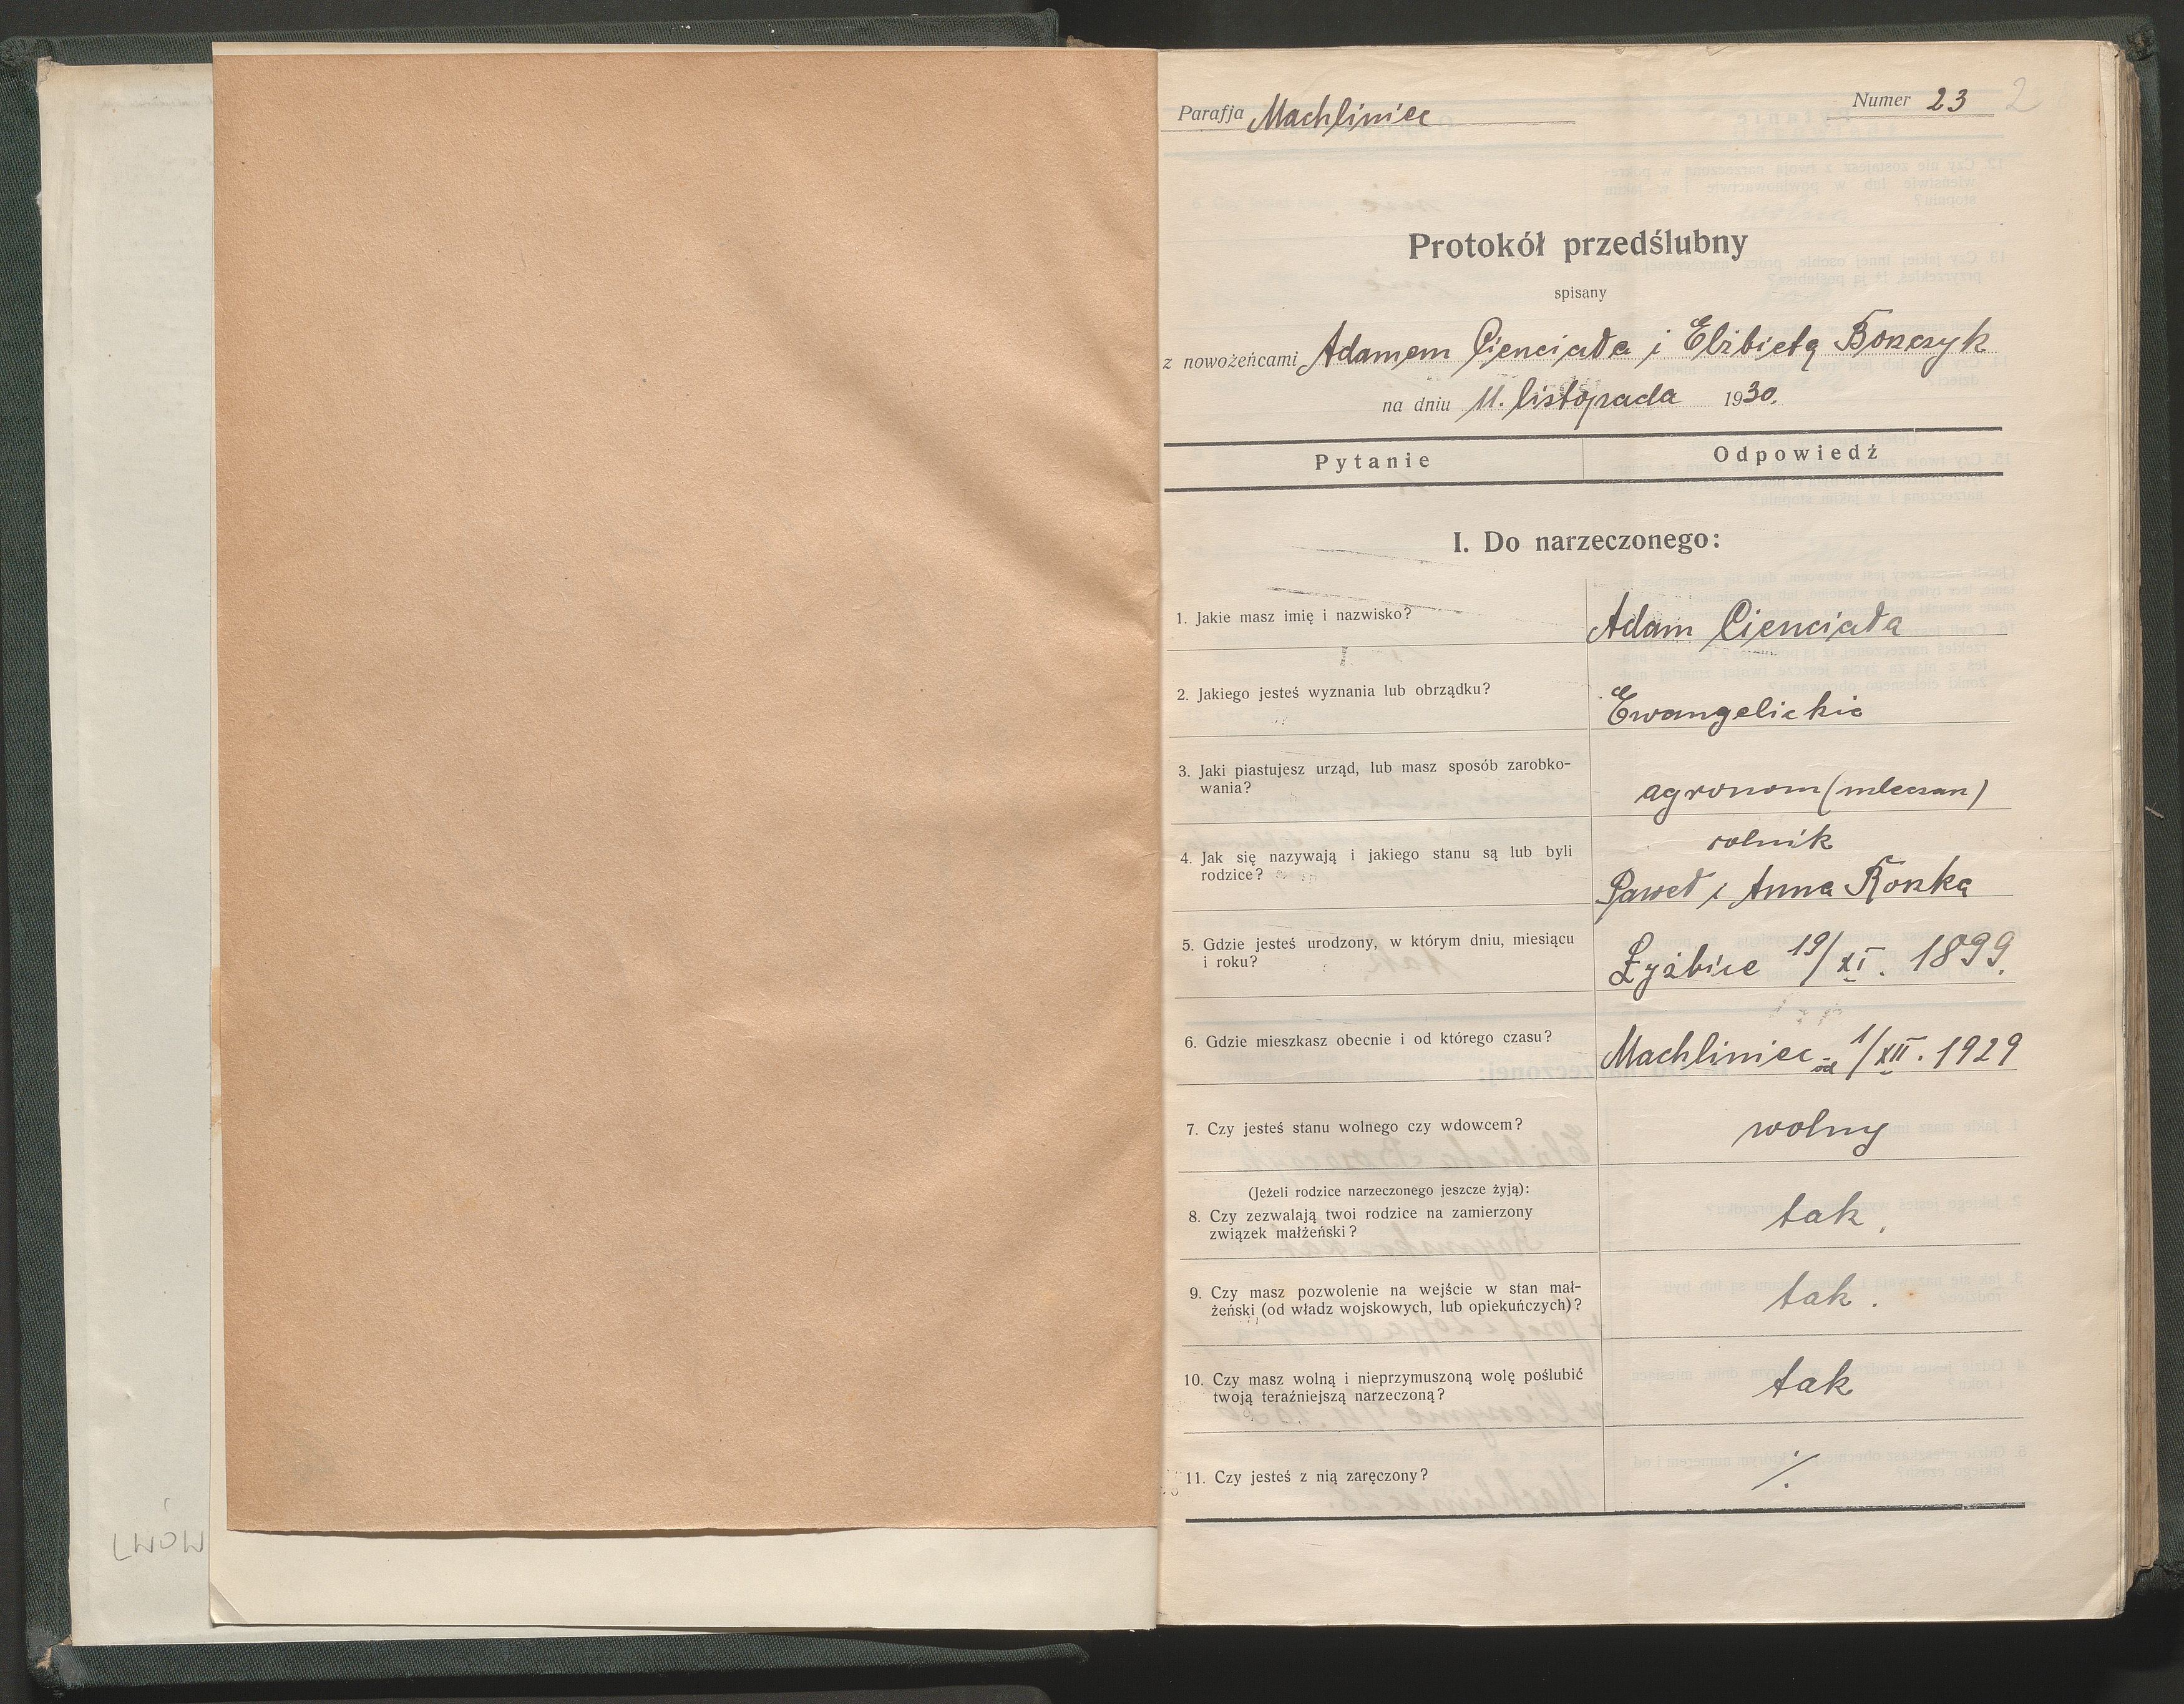 Parafja Machliniec
Numer 23 2
Protokół przedślubny
spisany
z nowożeńcami Adamem Cienciała i Elżbietą Bonczyk
na dniu 11. listopada 1930.
Pytanie Odpowiedź
I. Do narzeczonego:
1. Jakie masz imię i nazwisko? Adam Cienciała
2. Jakiego jesteś wyznania lub obrządku? Ewangelickie
3. Jaki piastujesz urząd, lub masz sposób zarobko-
wania? agronom (mleczan)
rolnik
4. Jak się nazywają i jakiego stanu są lub byli
rodzice? Paweł i Anna
5. Gdzie jesteś urodzony, w którym dniu, miesiącu
i roku? 19/XI. 1899.
6. Gdzie mieszkasz obecnie i od którego czasu? Machliniec - od 1/XII. 1929
7. Czy jesteś stanu wolnego czy wdowcem? wolny
(Jeżeli rodzice narzeczonego jeszcze żyją):
8. Czy zezwalają twoi rodzice na zamierzony
związek małżeński? tak.
9. Czy masz pozwolenie na wejście w stan mał-
żeński (od władz wojskowych, lub opiekuńczych)? tak.
10. Czy masz wolną i nieprzymuszoną wolę poślubić
twoją teraźniejszą narzeczoną? tak
11. Czy jesteś z nią zaręczony? ./.